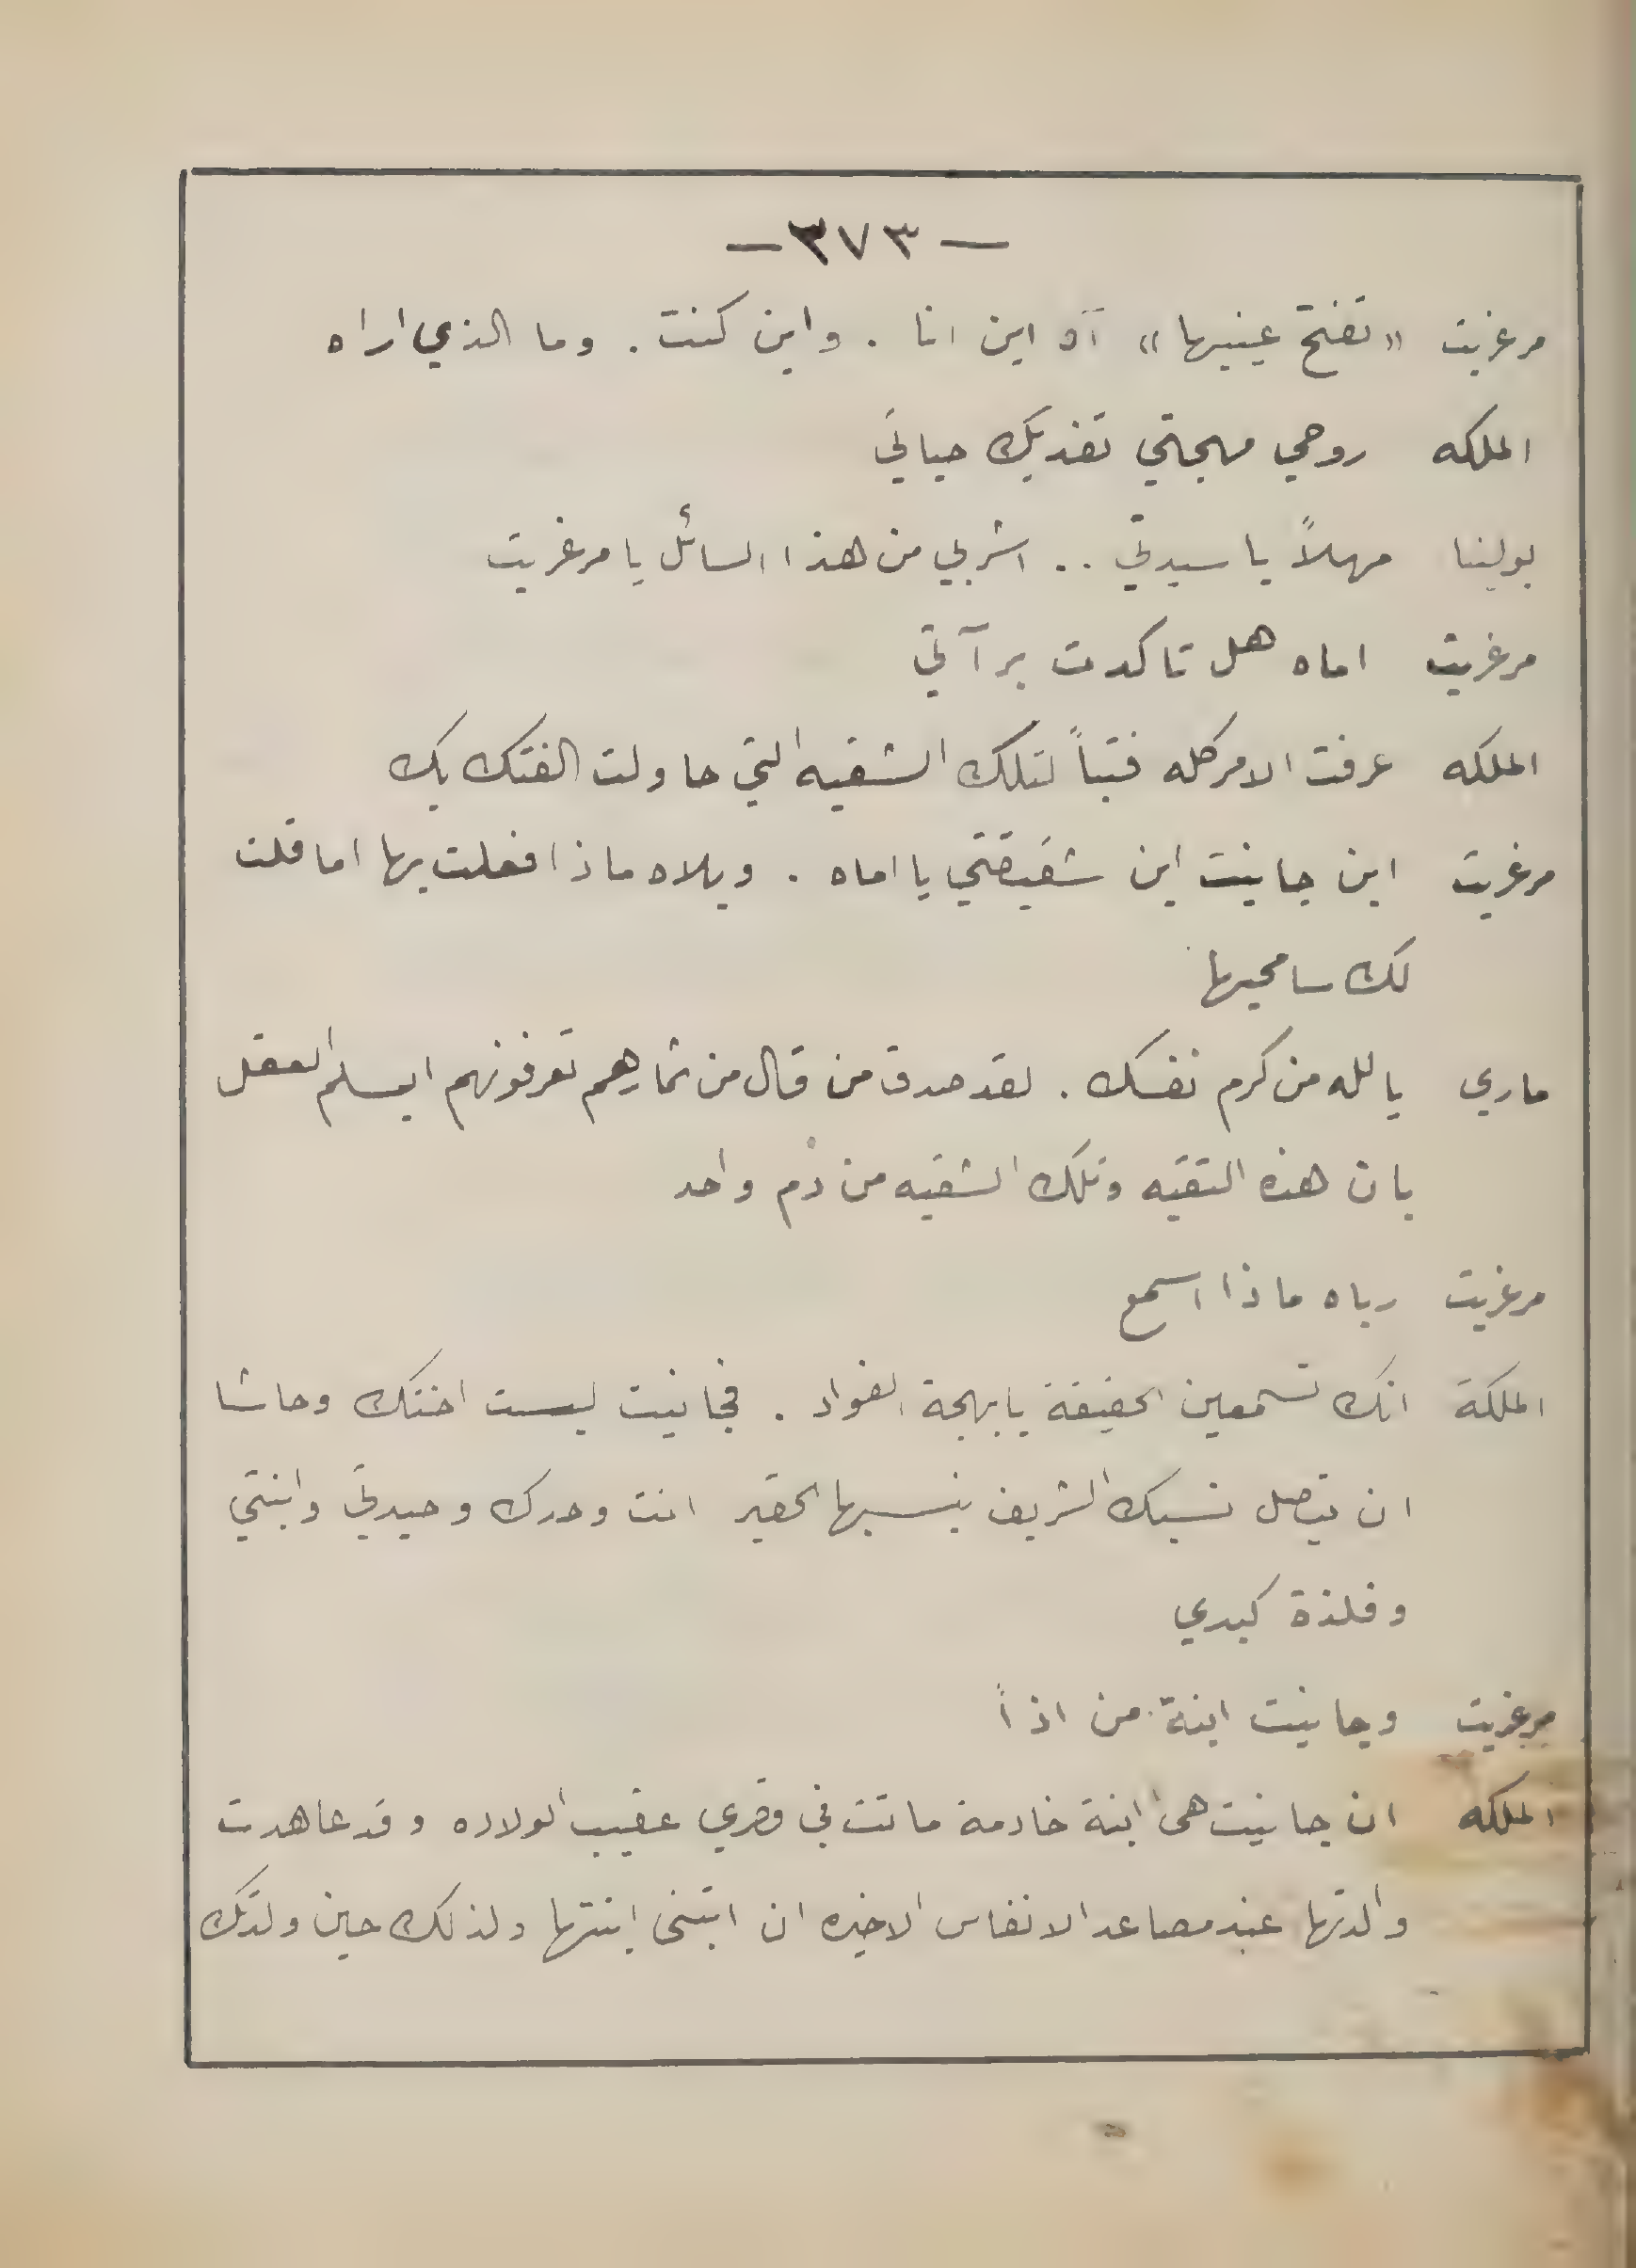 — ٣٧٣ —
مرغريت «تفتح عينيها» آه اين انا . واين كنت . وما الذي اراه
الملكه روحي مهجتي تفديك حياتي
بولينا مهلاً يا سيدتي .. اشربي من هذا السائل يا مرغريت
مرغريت اماه هل تاكدت برآتي
الملكه عرفت الامر كله فتباً لتلك الشقيه التي حاولت الفتك بك
مرغريت اين جانيت اين شقيقتي يا اماه . ويلاه ماذا فعلت بها اما قلت
لك سامحيها
ماري يالله من كرم نفسك . لقد صدق من قال من ثمارهم تعرفونهم ايسلم العقل
بان هذه التقيه وتلك الشقيه من دم واحد
مرغريت رباه ماذا اسمع
الملكة انك تسمعين الحقيقة يا بهجة الفواد . فجانيت ليست اختك وحاشا
ان يتصل نسبك الشريف بنسبها الحقير انت وحدك وحيدتي وابنتي
وفلذة كبدي
مرغريت وجانيت ابنة من اذاً
الملكه ان جانيت هى ابنة خادمة ماتت في قصري عقيب الولاده وقد عاهدت
والدتها عند مصاعد الانفاس الاخيره ان اتبنى ابنتها ولذلك حين ولدتك